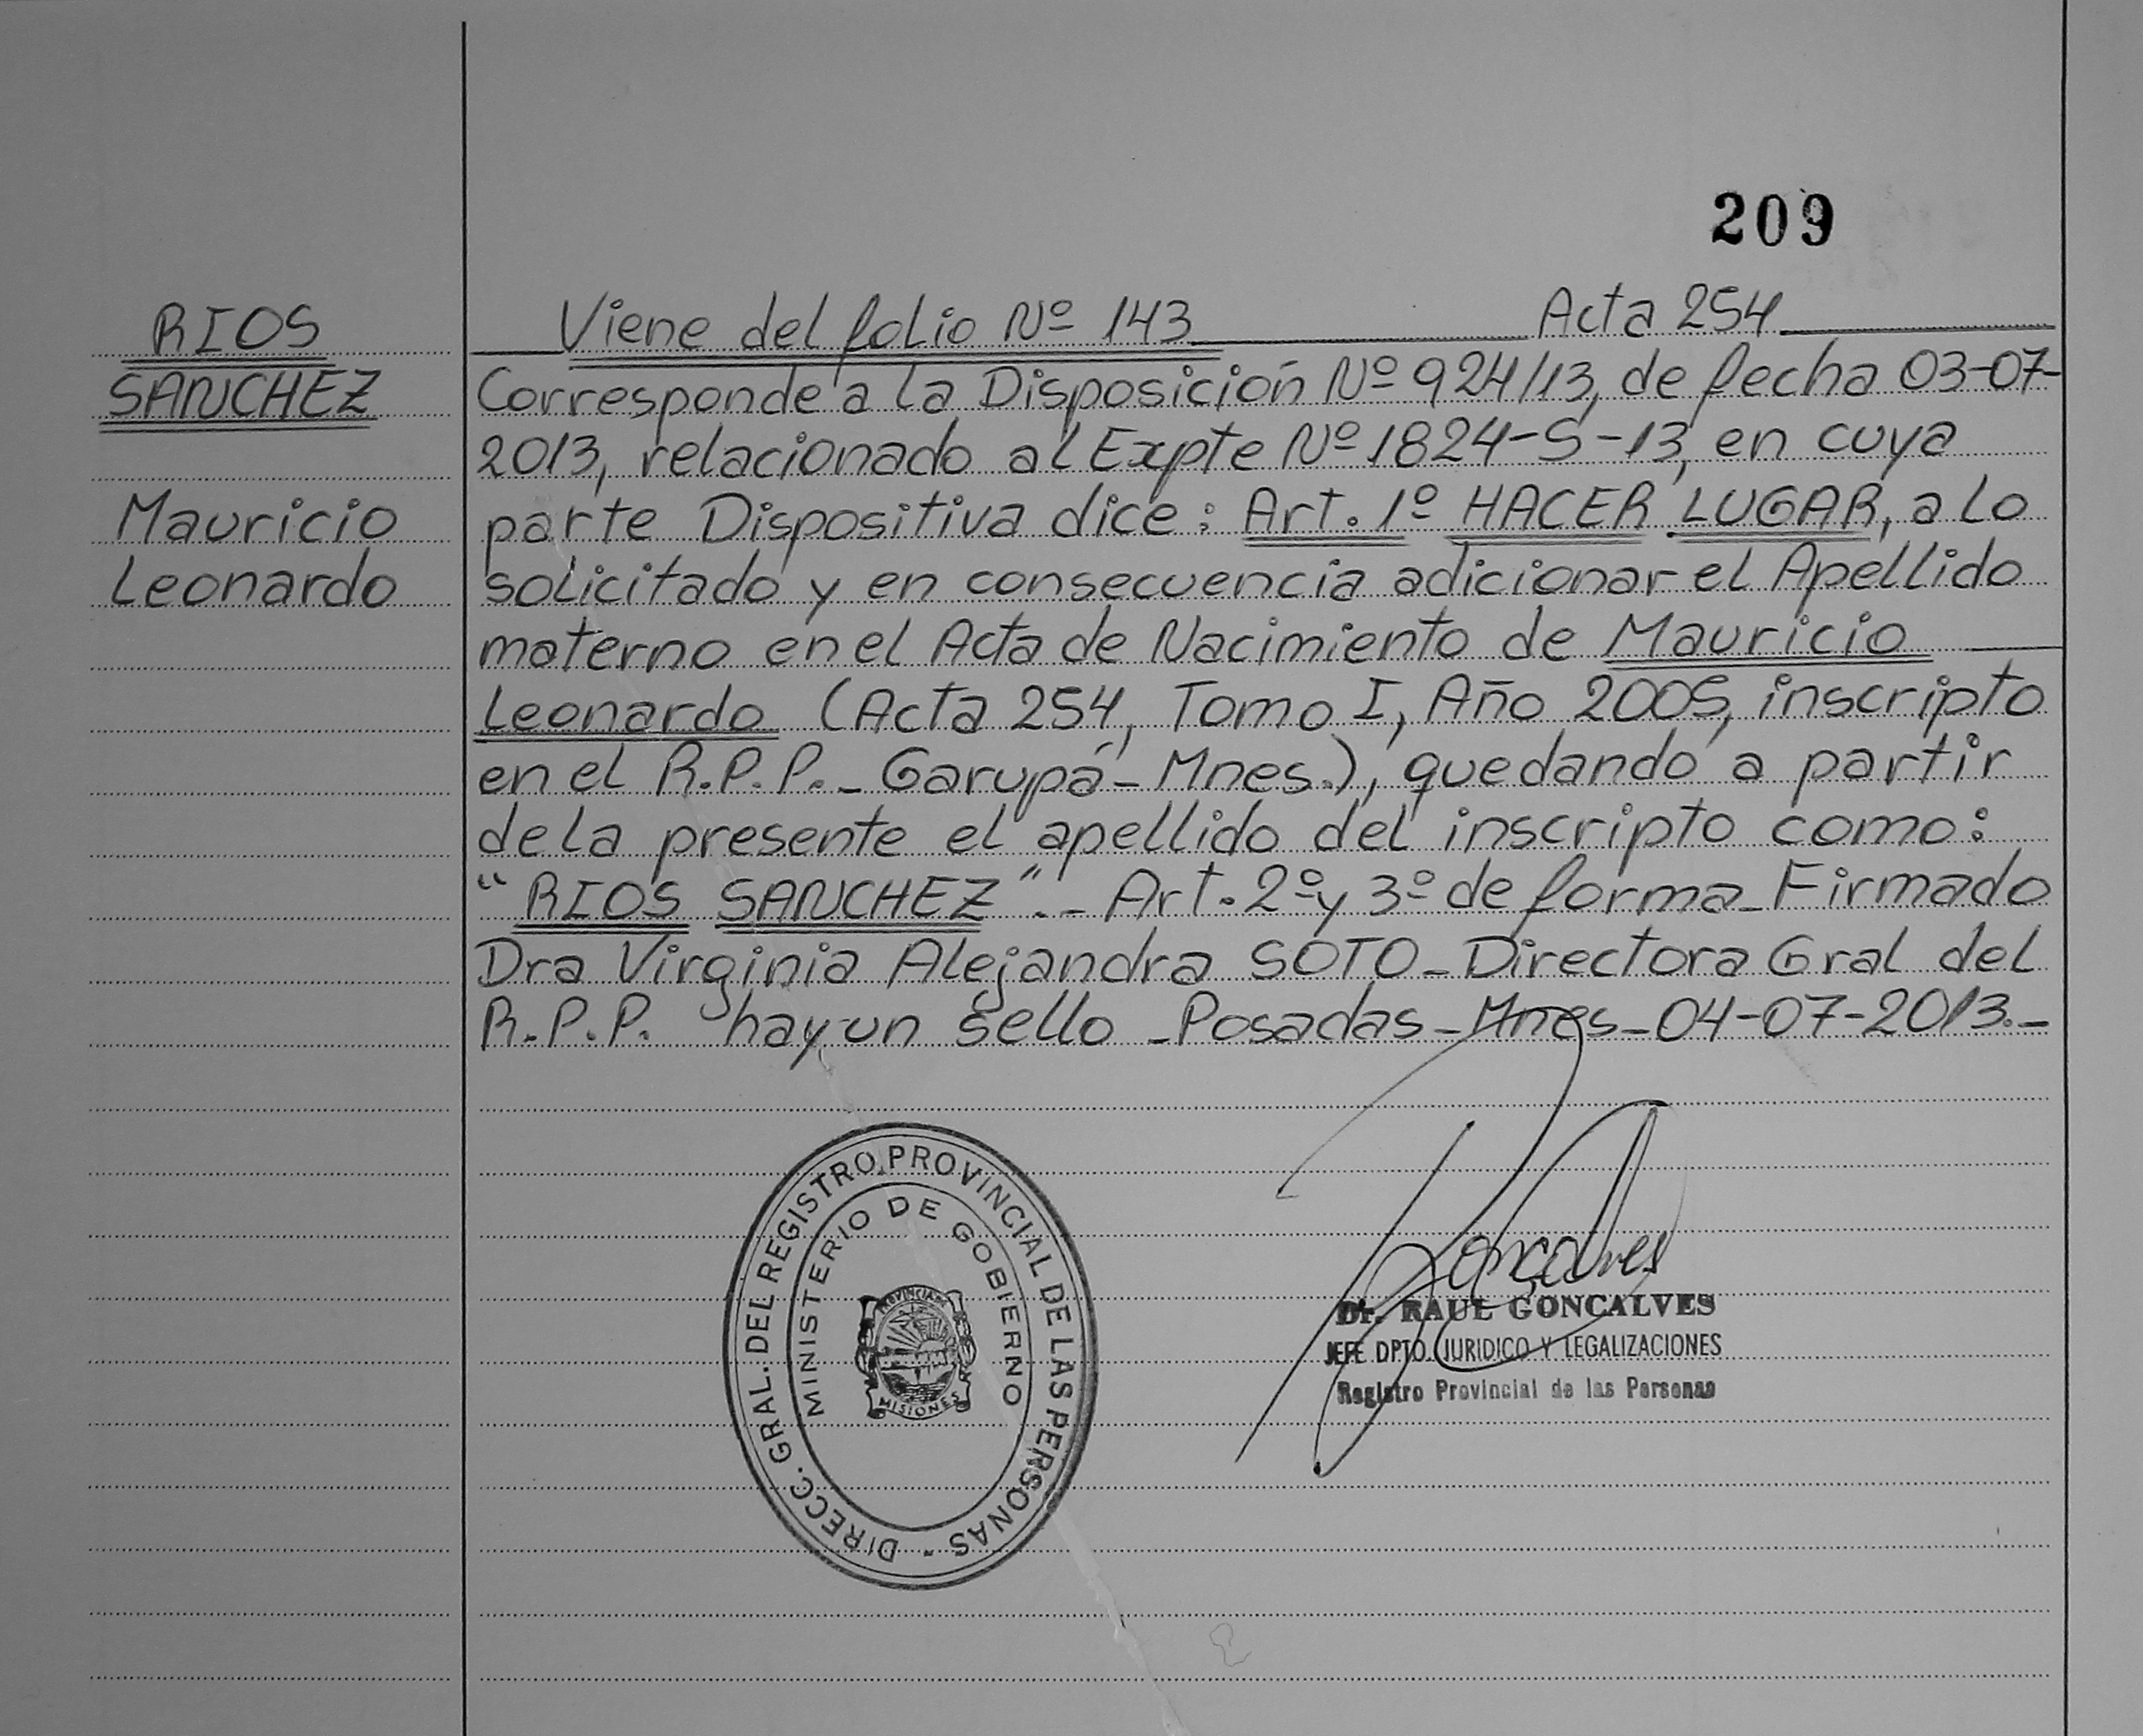 209
RIOS
SANCHEZ
Mauricio
Leonardo
Viene del folio Nº 143 Acta 254
Corresponde a la Disposición Nº 924/13, de fecha 03-07-
2013, relacionado al Expte Nº 1824-S-13, en cuya
parte Dispositiva dice: Art. 1º HACER LUGAR, a lo
solicitado y en consecuencia adicionar el Apellido
materno en el Acta de Nacimiento de Mauricio
Leonardo (Acta 254, Tomo I, Año 2005, inscripto
en el R.P.P._ Garupá-Mnes.), quedando a partir
de la presente el apellido del inscripto como:
"RIOS SANCHEZ"._ Art. 2º y 3º de forma_ Firmado
Dra Virginia Alejandra SOTO_ Directora Gral del
R.P.P. hay un sello _Posadas_Mnes_04-07-2013._
DIRECC. GRAL. DEL REGISTRO PROVINCIAL DE LAS PERSONAS -
MINISTERIO DE GOBIERNO
PROVINCIA DE
MISIONES
Gonçalves
Dr. RAUL GONCALVES
JEFE DPTO. JURIDICO Y LEGALIZACIONES
Registro Provincial de las Personas